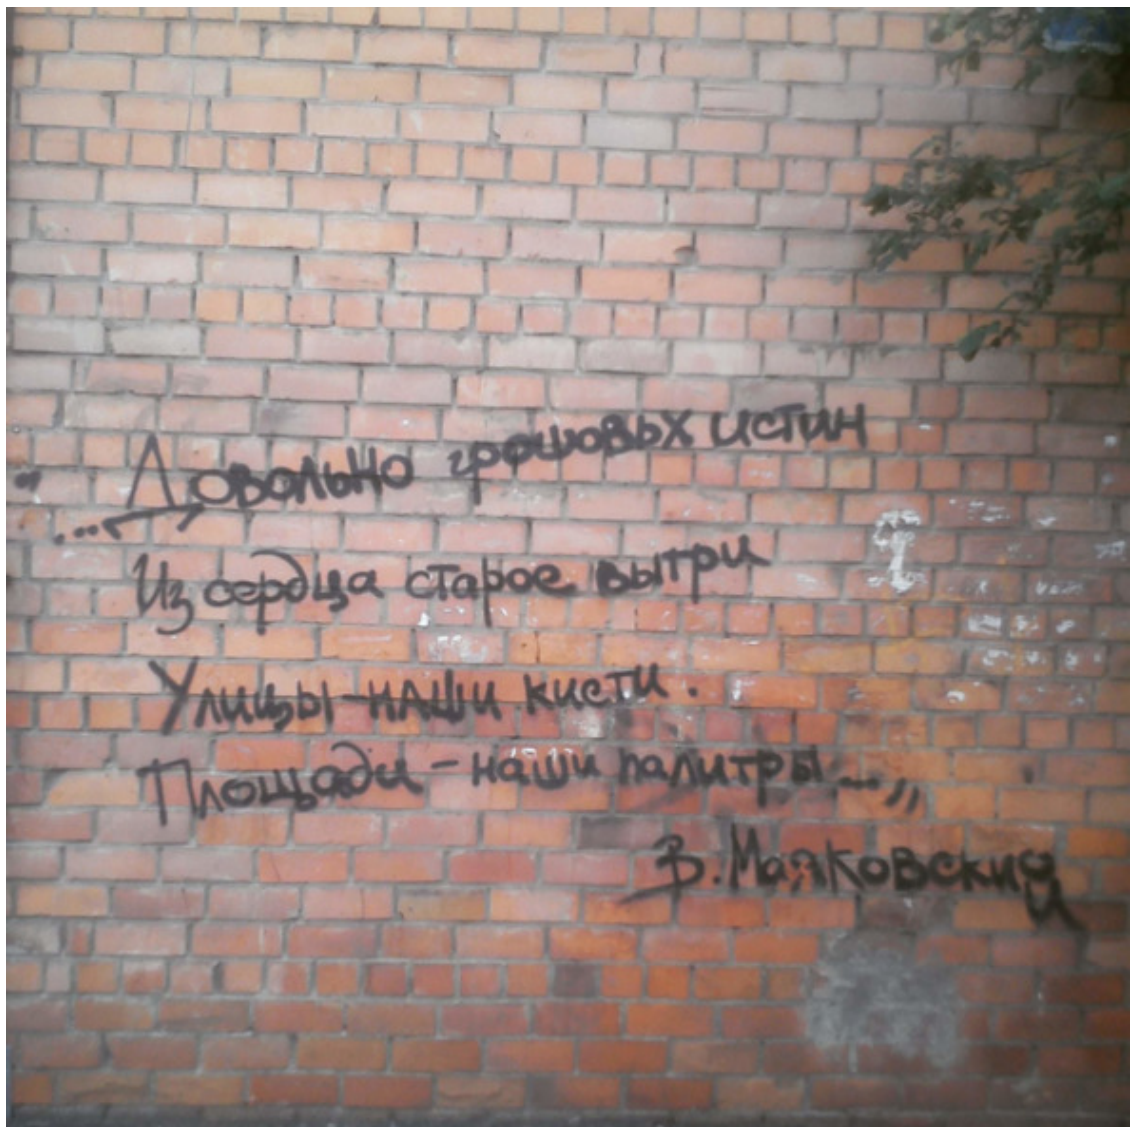 "...Довольно грошовых истин
Из сердца старое вытри
Улицы - наши кисти.
Площади - наши палитры..."
В. Маяковский